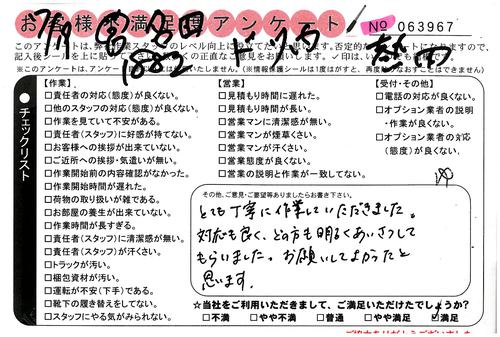 お客様不満足度アンケート
No 063967
7/19
1882
熱田
このアンケートは、弊社作業スタッフのレベル向上に役立てたいと思います。否定的な
記入後シールを上に貼って
くの正直なご意見をお知らせ
【作業】
□責任者の対応(態度)が良くない。
□他のスタッフの対応(態度)が良くない。
□作業を見ていて不安がある。
□責任者(スタッフ)に好感が持てない。
□お客様への挨拶が出来ていない。
□ご近所への挨拶・気遣いが無い。
□作業開始前の内容確認がなかった。
□作業開始時間が遅れた。
□荷物の取り扱いが雑である。
□お部屋の養生が出来ていない。
□作業時間が長すぎる。
□責任者(スタッフ)に清潔感が無い。
□責任者(スタッフ)が汗くさい。
□トラックが汚い。
□梱包資材が汚い。
□運転が不安(下手)である。
□靴下の履き替えをしてない。
□スタッフにやる気がみられない。
【営業】
□見積もり時間に遅れた。
□見積もり時間が長い。
□営業マンに清潔感が無い。
□営業マンが煙草くさい。
□営業マンが汗くさい。
□営業態度が良くない。
□営業の説明と作業が一致してない。
【受付・その他】
□電話の対応が良くない。
□オプション業者の説明
・作業が良くない。
□オプション業者の対応
(態度)が良くない。
● チェックリスト
その他、ご意見・ご要望等ありましたらお書き下さい。
とても丁寧に作業していただきました。
対応も良く、どの方も明るくあいさつして
もらいました。お願いしてよかったと
思います。
☆当社をご利用いただきまして、ご満足いただけたでしょうか?
□不満 □やや不満 □普通 □やや満足 □満足
ご協力ありがとうございました